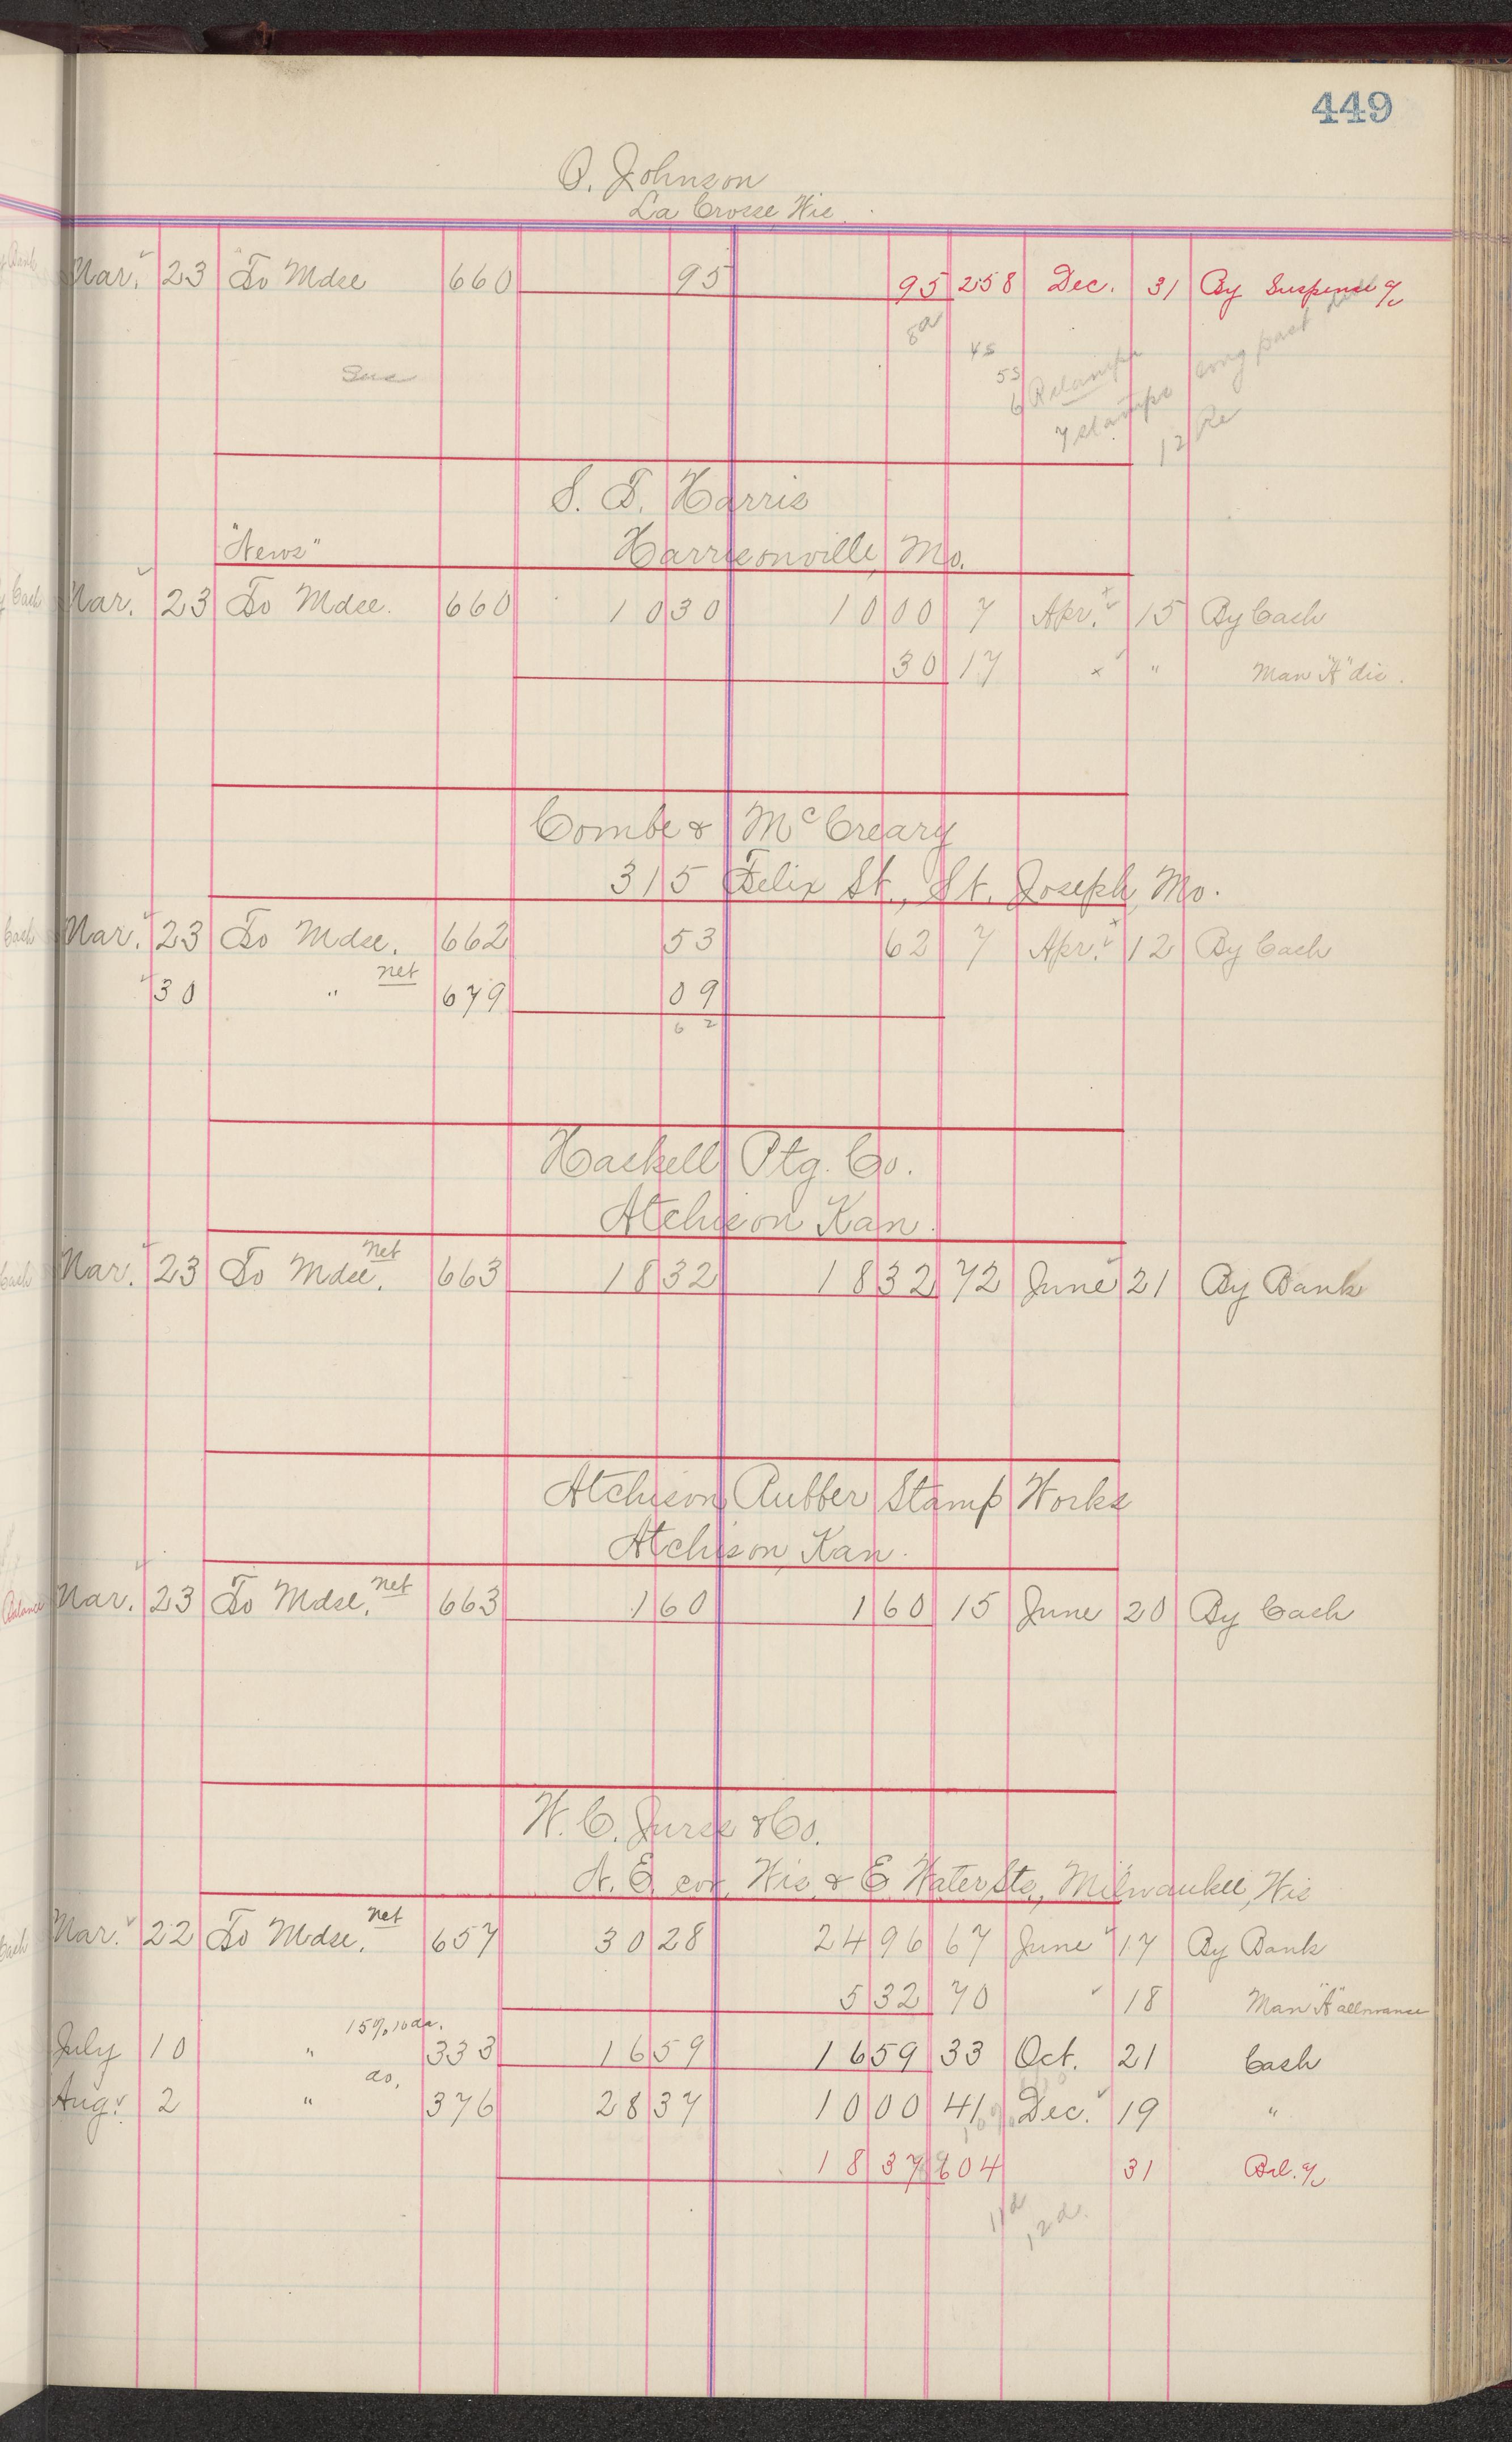 449
O. Johnson
La Crosse Wis.
Mar. 23 To Mdse 660 95 95 258 Dec. 31 By Suspense a/c
8a
4s
5s
Sue
6 Restamps long past due
7 stamps
12 Re
S. T. Harris
"News" Harrisonville, Mo.
Mar. 23 To Mdse. 660 10 30 10 00 7 Apr. 15 By Cash
30 17 x " Man "A" dis.
Combe & McCreary
315 Felix St., St. Joseph, Mo.
Mar. 23 To Mdse. 662 53 62 7 Apr. 12 By Cash
30 " net 679 09
62
Haskell Ptg. Co.
Atchison Kan.
Mar. 23 To Mdse. net 663 18 32 18 32 72 June 21 By Bank
Atchison Rubber Stamp Works
Atchison, Kan.
Mar. 23 To Mdse. net 663 1 60 1 60 15 June 20 By Cash
W. C. Jurss & Co.
N. E. cor. Wis. & E. Water Sts., Milwaukee, Wis
Mar. 22 To Mdse. net 657 30 28 24 96 67 June 17 By Bank
5 32 70 18 Man "A" allowance
July 10 " 15% 10 da. 333 16 59 16 59 33 Oct. 21 Cash
Aug. 2 " do. 376 28 37 10 00 41 Dec. 19 "
18 37 604 31 Bal. a/c
11d
12d.